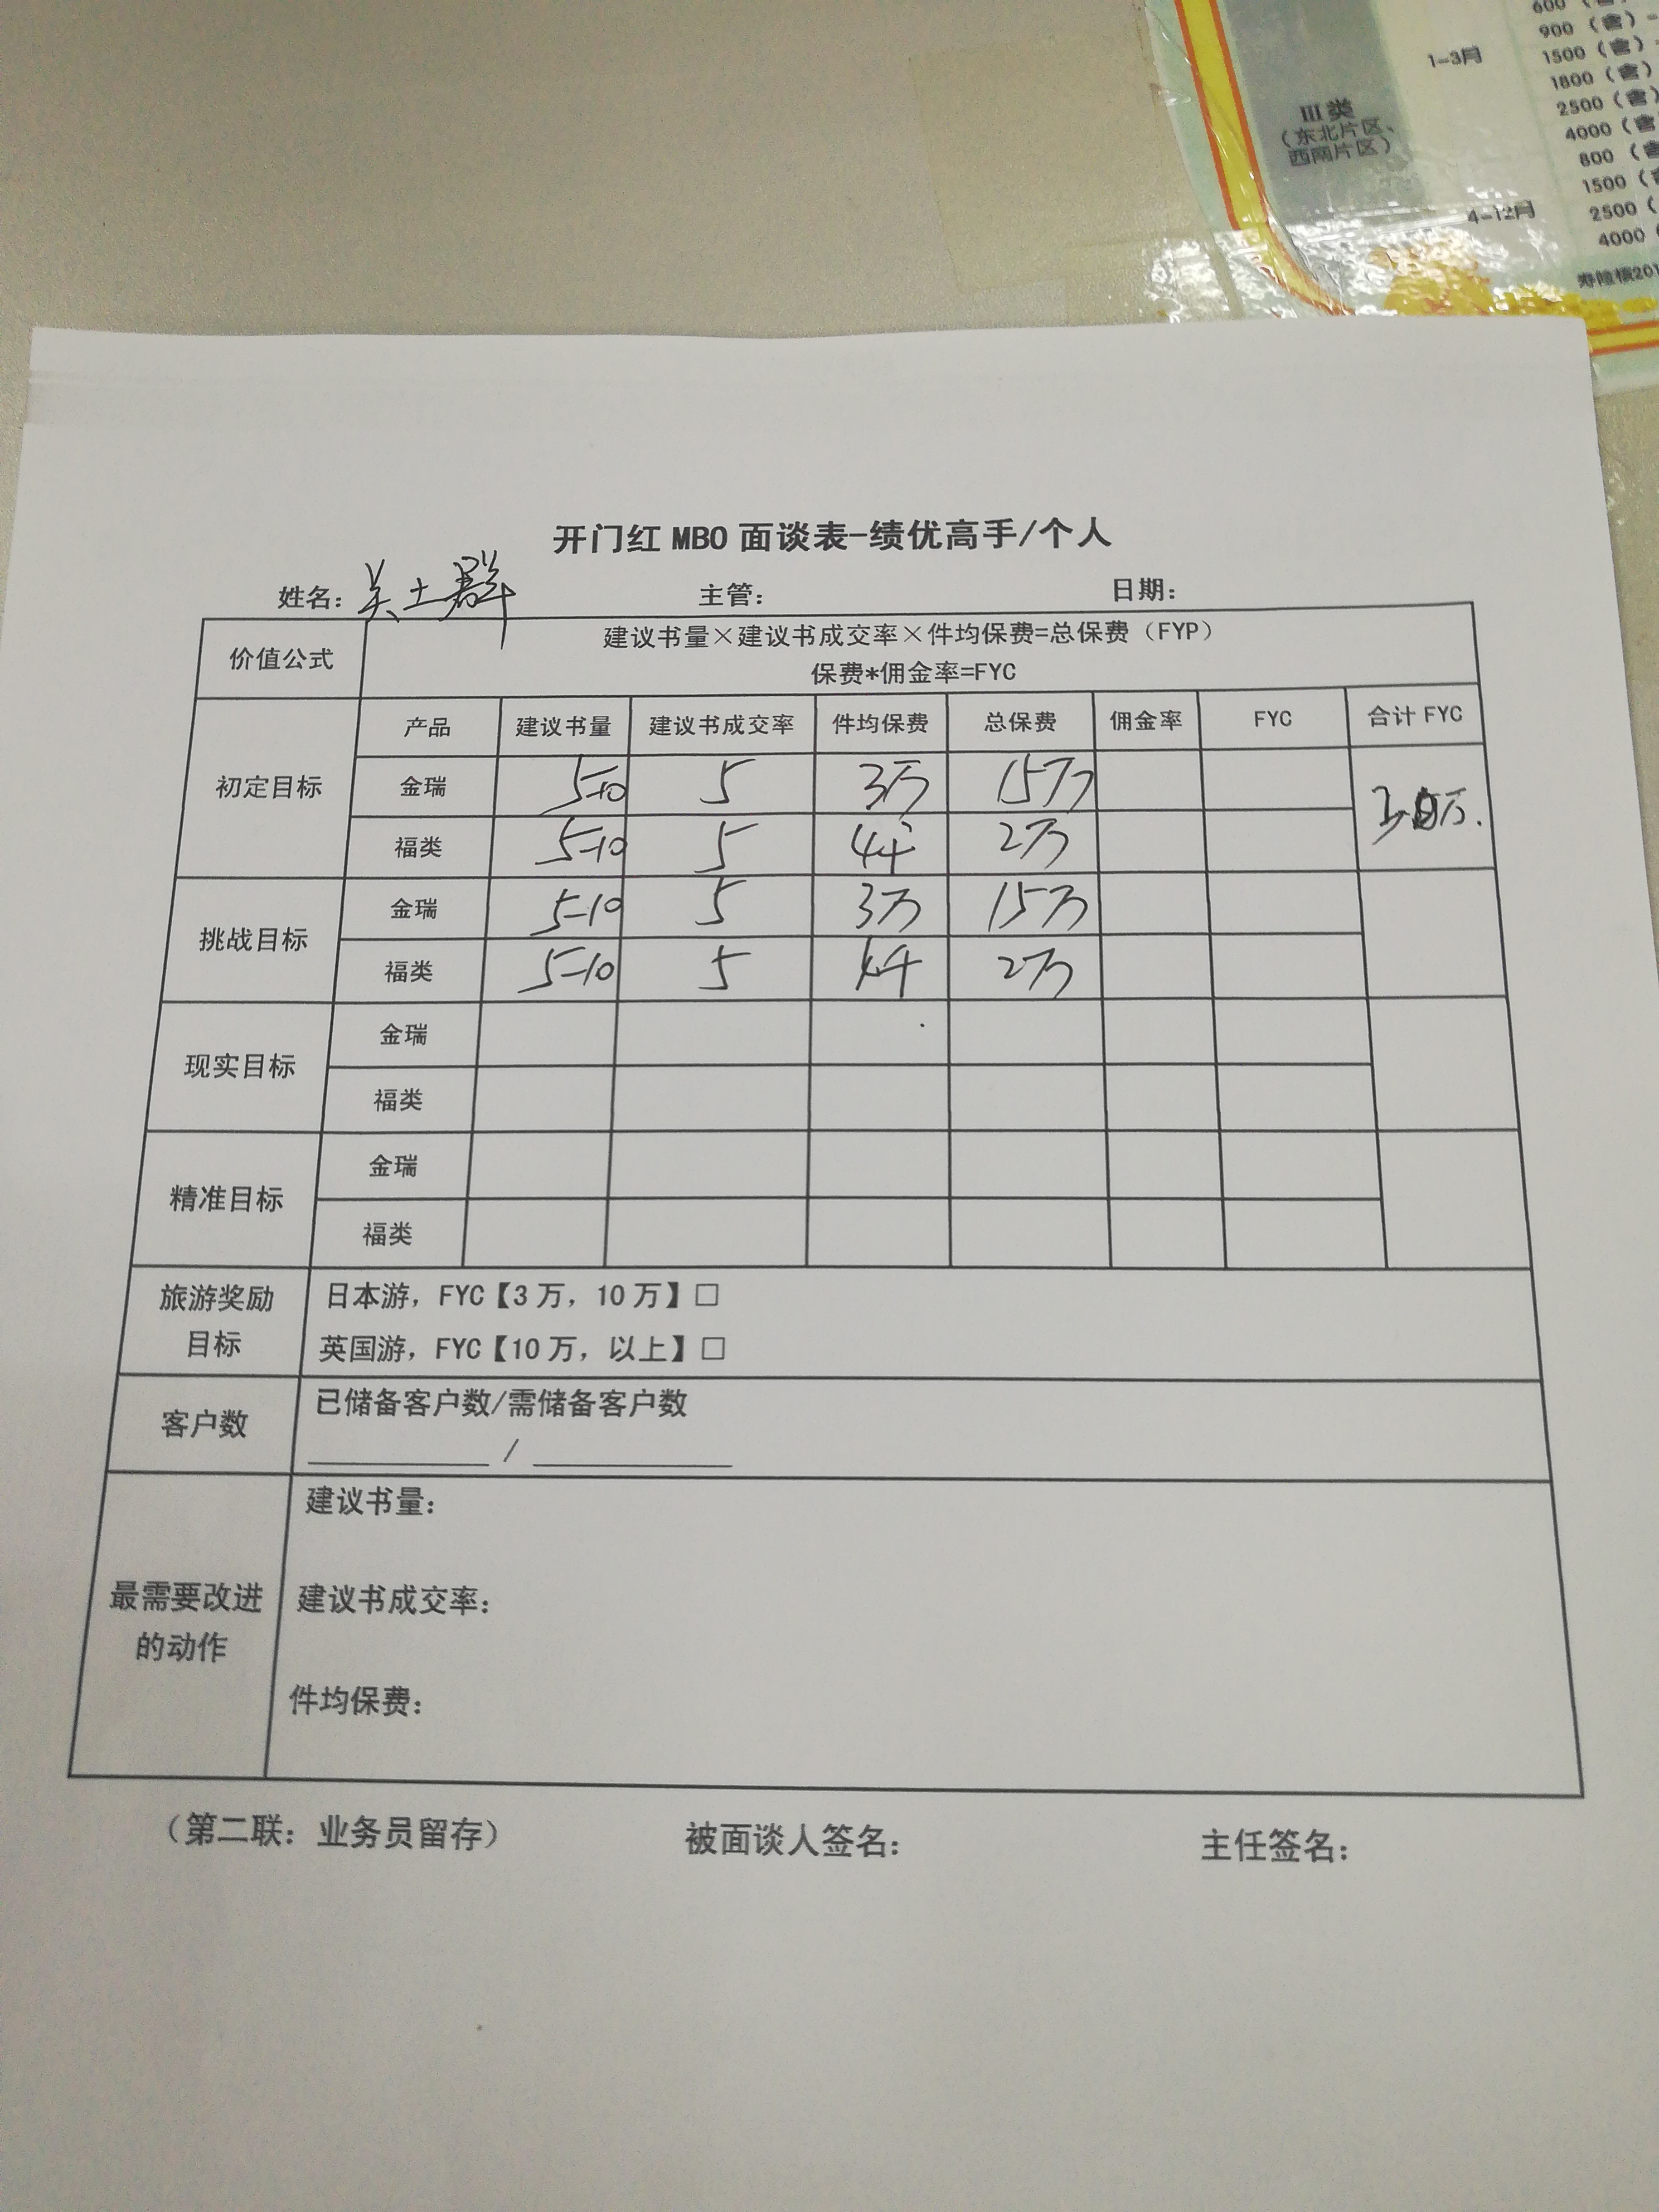 600
900（含）
1500（含）
1-3月
1800（含）
2500（含）
III类
4000（含
（东北片区、
800（含
西南片区）
1500（
4-12月
2500（
4000
寿险核201
开门红 MBO 面谈表-绩优高手/个人
姓名： 土群 主管： 日期：
价值公式 建议书量×建议书成交率×件均保费=总保费（FYP）
保费*佣金率=FYC
产品 建议书量 建议书成交率 件均保费 总保费 佣金率 FYC 合计 FYC
初定目标 金瑞 5-10 5 3万 15万
福类 5-10 5 4千 2万
挑战目标 金瑞 5-10 5 3万 15万
福类 5-10 5 4千 2万
现实目标 金瑞
福类
精准目标 金瑞
福类
旅游奖励
目标
日本游，FYC【3 万，10 万】□
英国游，FYC【10 万，以上】□
客户数 已储备客户数/需储备客户数
/
最需要改进
的动作
建议书量：
建议书成交率：
件均保费：
（第二联：业务员留存） 被面谈人签名： 主任签名：